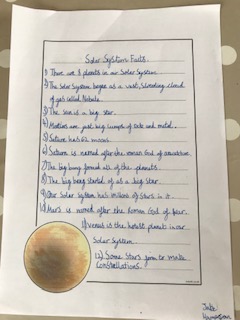 Solar System Facts.
1) There are 8 planets in our Solar System.
2) The Solar System began as a vast, cloud
of gas called Nebula.
3) The sun is a big star.
4) are just big lumps of rock and metal.
5) Saturn has 62 moons.
6) Saturn is named after the roman God of
7) The big bang formed all of the planets.
8) The big bang started of as a big star.
9) Our Solar system has millions of stars in it.
10) Mars is named after the Roman God of
11) Venus is the hotest planet in our
Solar System.
12) Some Stars to make
Constellations.
Jake